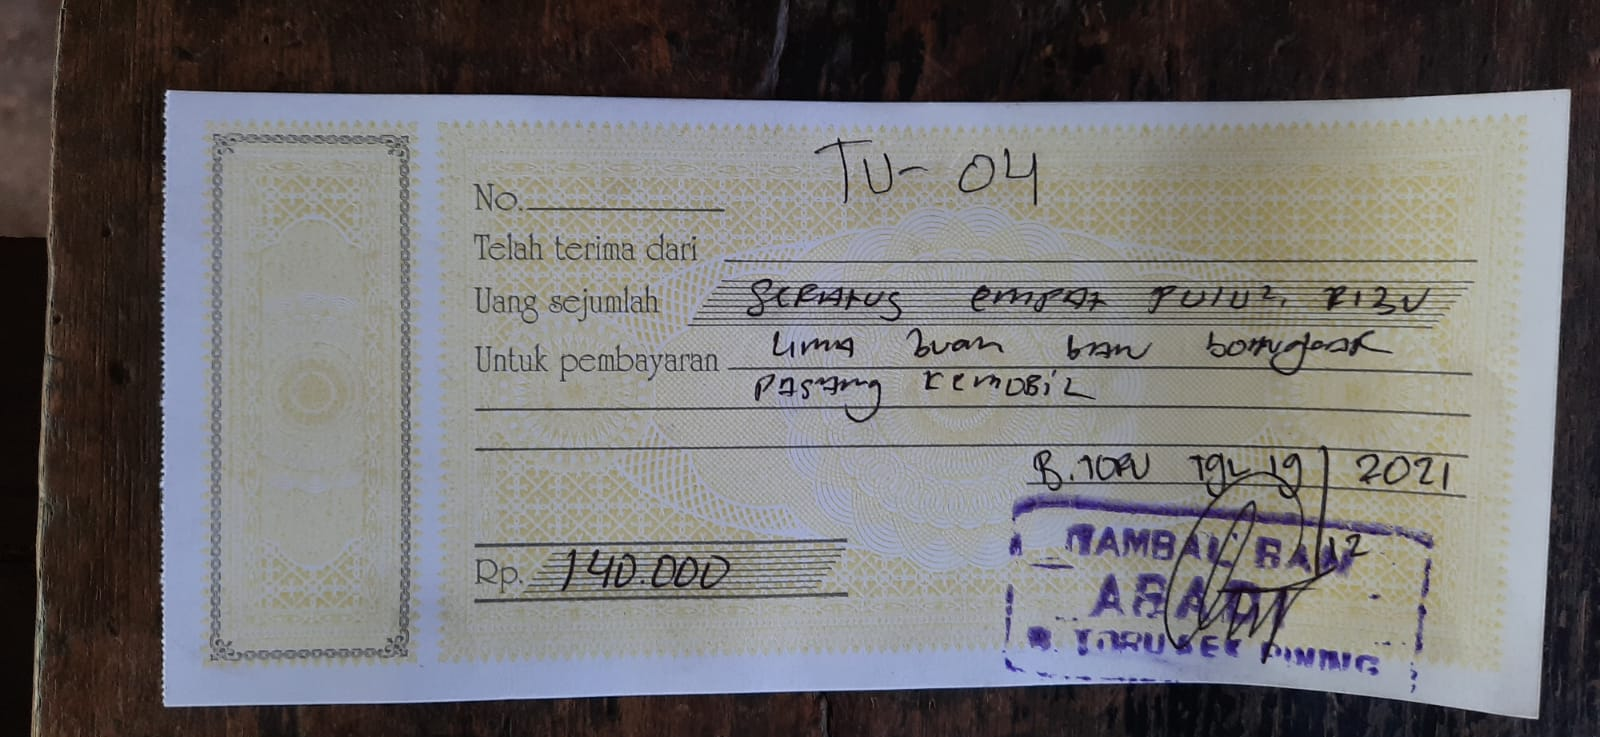 TU-04
No.
Telah terima dari
Uang sejumlah SERATUS EMPAT PULUH RIBU
Untuk pembayaran LIMA BUAH BAN BONGKAR
PASANG KEMOBIL
B.TORU TGL 19 / 2021
12
Rp. 140.000
TAMBAL BAN
ABADI
B. TORU SEK PINING